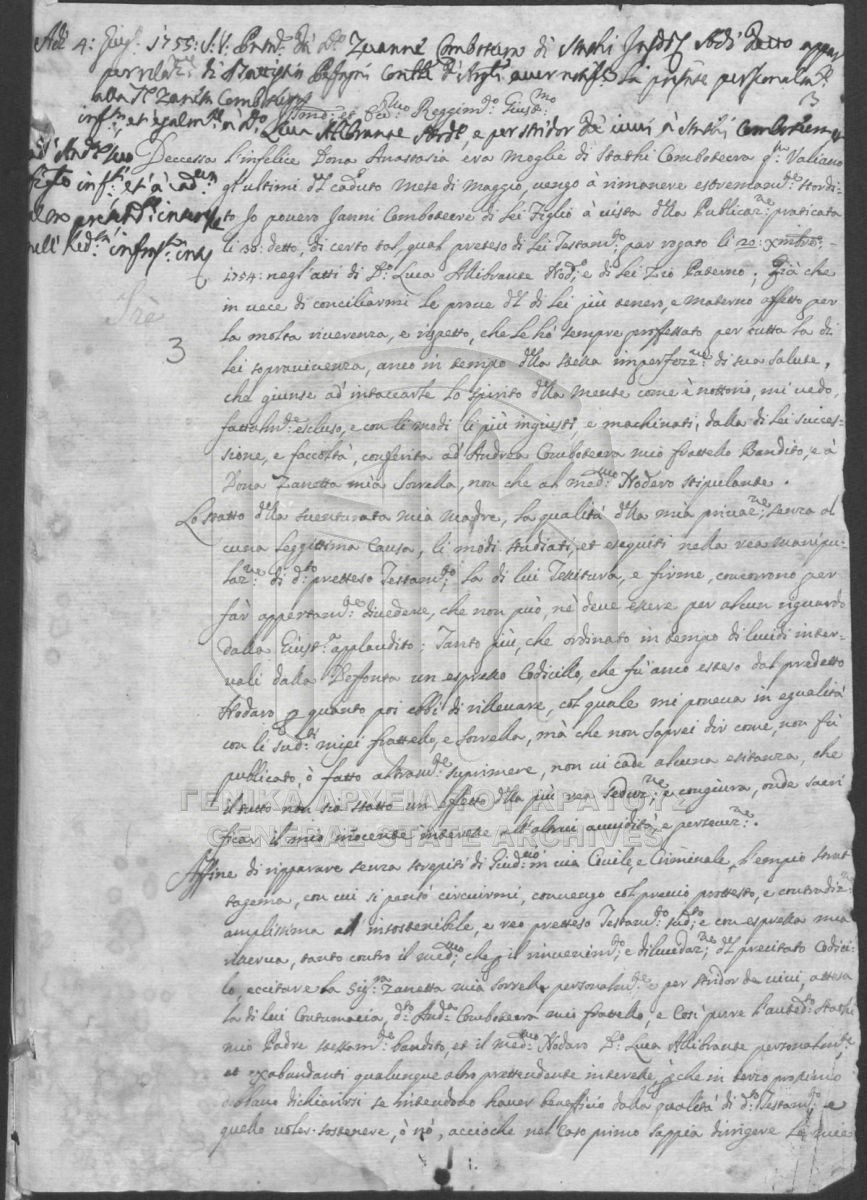 Adì 4: Giug.º 1755: S.V. Pntta. da D.º Zuanne Combotecra di Stathi
per relaz.ne di Battista
alla D.ª Zanetta Combotecra
Ill.mo et Ecc.mo Reggim.to Giust.mo
inf.ta et egalm.te a D.º Luca Allibrante Nod.º, e per stridor da vicini à Stathi Combotecra
3
Deccessa l'infelice Dona Anastasia era moglie di Stathi Combotecra q.m Valiano
gl'ultimi del caduto Mese di Maggio, vengo à rimanere estremam.te stordi-
to Io povero Janni Combotecra di Lei Figlio à vista della Publicaz.ne praticata
li 30: detto, di certo tal, qual preteso di Lei Testam.to par rogato li 20: Xmbre:
1754: negl'atti di D.º Luca Allibrante Nod.º e di Lei Zio Paterno; Già che
in vece di conciliarmi le prove del di Lei più tenero, e materno affetto per
la molta riverenza, e rispetto, che le hò sempre proffessato per tutta la di
Lei sopravivenza, anco in tempo della stessa imperfez.ne di sua salute,
che giunse ad intaccarle lo spirito della mente come è nottorio, mi vedo
fattalm.te escluso, e con li modi li più ingiusti, e machinati, dalla di Lei succes-
sione, e facoltà, conferita ad Andrea Combotecra mio frattello Bandito, e à
Dona Zanetta mia Sorrella, non che al med.mo Nodaro stipulante.
Trè
3
Lo statto della sventurata mia Madre, la qualità della mia privaz.ne, senza al-
cuna leggittima causa, li modi studiati, et eseguiti nella rea manipu-
laz.ne di d.to pretteso Testam.to, la di lui Tessitura, e firme, concorrono per
far appertam.te divedere, che non può, nè deve essere per alcun riguardo
dalla Giust.a applaudito; Tanto più, che ordinato in tempo di lucidi inter-
vali dalla Deffonta un espresso Codicillo, che fù anco esteso dal predetto
Nodaro p quanto poi ebbi di rillevare, col quale mi poneva in egualità
con li sud.ti miei frattello, e sorrella, mà che non saprei dir come, non fù
publicato, ò fatto altram.te suprimere, non vi cade alcuna esitanza, che
il tutto non sia statto un effetto della più rea seduz.ne, e congiura, onde sacri-
ficar il mio inocente interesse all'altrui avvidità, e persecuz.ne.
ΓΕΝΙΚΑ ΑΡΧΕΙΑ ΤΟΥ ΚΡΑΤΟΥΣ
GENERAL STATE ARCHIVES
Affine di ripparare senza strepiti di Giud.º in via Civile, e Criminale, l'empio strat-
tagema, con cui si pensò circuirmi, convengo col previo prottesto, e contradiz.ne
amplissima all'insostenibile, e reo pretteso Testam.to sud.to, e con espressa mia
riserva, tanto contro il med.mo, che p il rinvenim.to, e dilucidaz.ne del precitato Codicil-
lo, eccitare la Sig.ra Zanetta mia Sorrella personalm.te, e per stridor da vicini, attesa
la di lui Contumacia, d.to And.a Combotecra mio frattello, e così purre l'anted.to Stathi
mio Padre bandito, et il med.mo Nodaro D.º Luca Allibrante personalm.te,
et exabundanti qualunque altro prettendente interesse, p che in terzo prossimo
debano dichiarirsi se intendono haver benefficio dalla qualità di d.to Testam.to, e
quello voler sostenere, ò nò, accioche nel Caso primo sappia dirrigere le mie